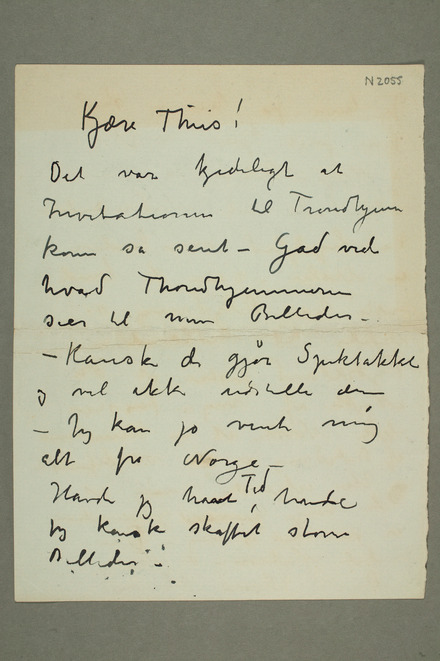 N 2055
Kjære Thiis!
Det var kjedeligt at
Invitationen til Trondhjem
kom så sent – Gad vide
hvad Throndhjemmerne
sier til mine Billeder –
– Kanske de gjør Spektakkel
og vil ikke udstille dem
– Jeg kan jo vente mig
alt fra Norge –
Havde jeg havt Tid, havde
jeg kanske skaffet større
Billeder